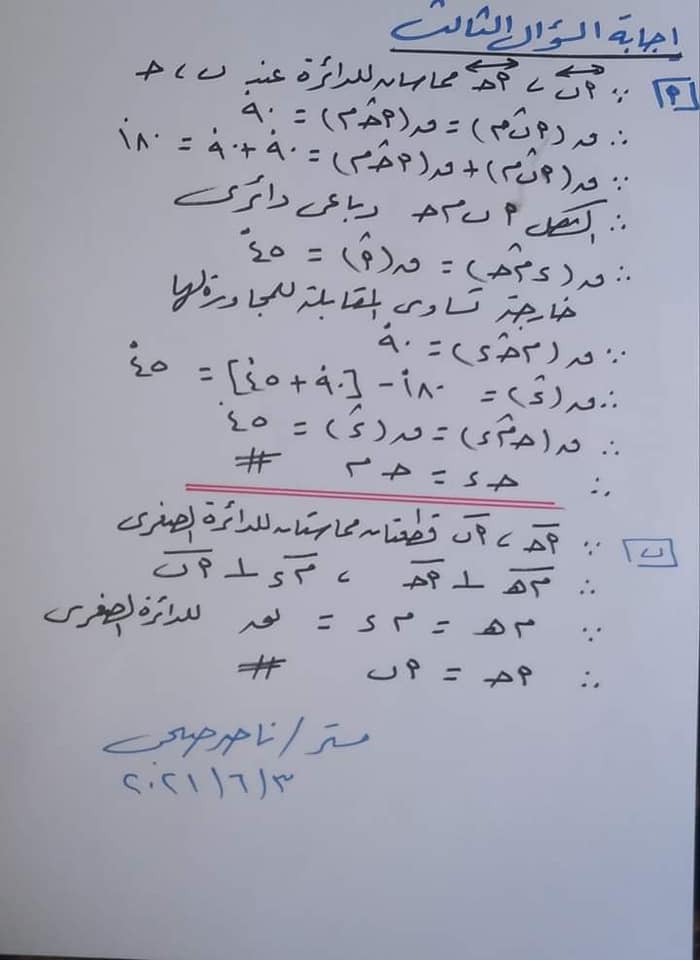 اجابة السؤال الثالث
[أ] ∵ أب ، أح مماسان للدائرة عند ب ، ح
∴ ق (أبم) = ق (أحم) = ٩٠°
∵ ق (أبم) + ق (أحم) = ٩٠° + ٩٠° = ١٨٠°
∴ الشكل أ ب م ح رباعى دائرى
∴ ق (ءمح) = ق (أ) = ٤٥°
خارجة تساوى المقابلة للمجاورة لها
∵ ق (محء) = ٩٠°
∴ ق (ء) = ١٨٠° - [٩٠° + ٤٥°] = ٤٥°
∴ ق (حمء) = ق (ء) = ٤٥°
∴ حء = حم #
[ب] ∵ أح ، أب قطعتان مماستان للدائرة الصغرى
∴ مه ⊥ أح ، مء ⊥ أب
∵ مه = مء = نق للدائرة الصغرى
∴ أح = أب #
مستر / ناصر صبحى
٢٠٢١/٦/٣